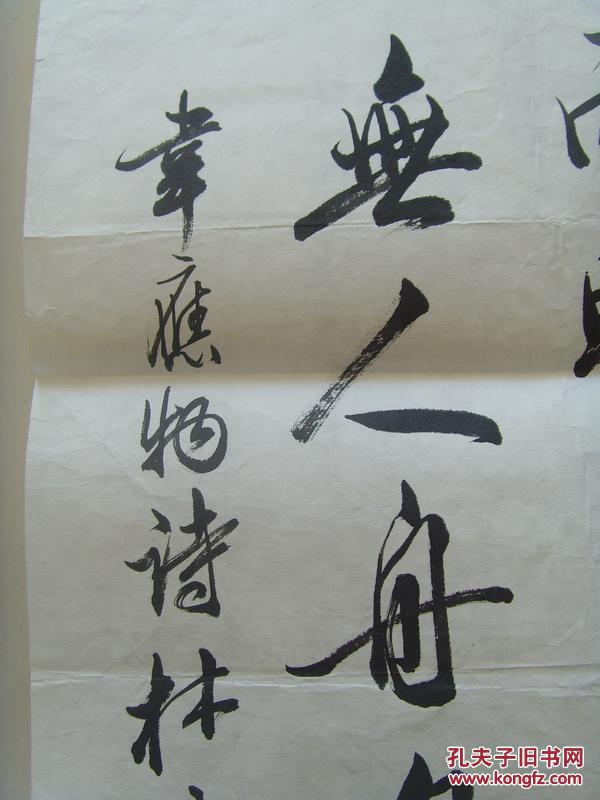 無人舟
韋應物詩林
孔夫子旧书网
www.kongfz.com